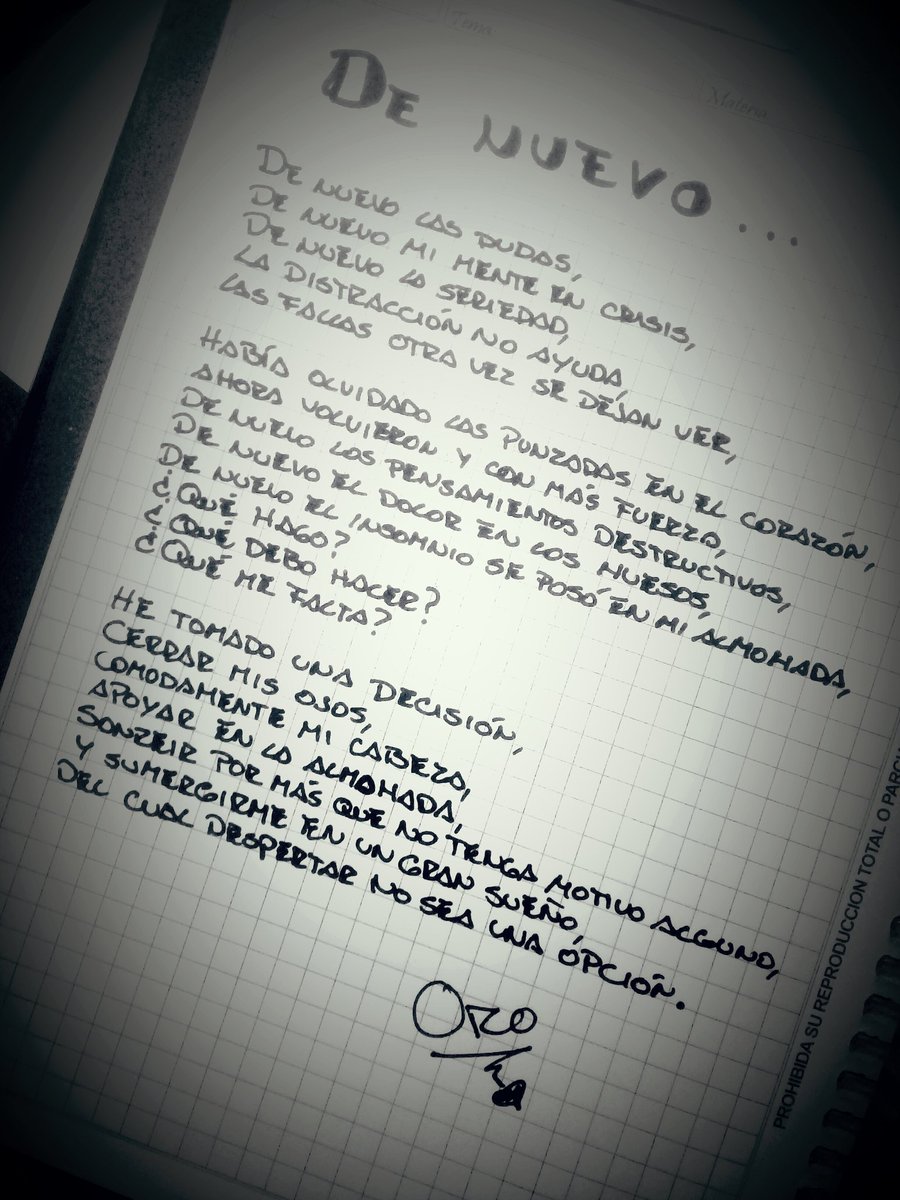 Tema
Materia
DE NUEVO...
DE NUEVO LAS DUDAS,
DE NUEVO MI MENTE EN CRISIS,
DE NUEVO LA SERIEDAD,
LA DISTRACCIÓN NO AYUDA,
LAS FALLAS OTRA VEZ SE DEJAN VER,
HABÍA OLVIDADO LAS PUNZADAS EN EL CORAZÓN,
AHORA VOLVIERON Y CON MÁS FUERZA,
DE NUEVO LOS PENSAMIENTOS DESTRUCTIVOS,
DE NUEVO EL DOLOR EN LOS HUESOS,
DE NUEVO EL INSOMNIO SE POSÓ EN MI ALMOHADA,
¿QUÉ HAGO?
¿QUÉ DEBO HACER?
¿QUÉ ME FALTA?
HE TOMADO UNA DECISIÓN,
CERRAR MIS OJOS,
COMODAMENTE MI CABEZA,
APOYAR EN LA ALMOHADA,
SONREIR POR MÁS QUE NO TENGA MOTIVO ALGUNO,
Y SUMERGIRME EN UN GRAN SUEÑO,
DEL CUAL DESPERTAR NO SEA UNA ÓPCIÓN.
ORO
PROHIBIDA SU REPRODUCCION TOTAL O PARCI